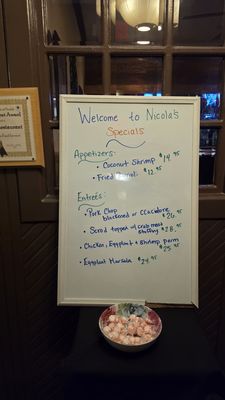 Welcome to Nicola's
Specials
Appetizers:
• Coconut Shrimp $14.95
• Fried $12.95
Entreés:
• Pork Chop
blackened or $26.95
• Scrod topped w/ crab meat
stuffing $28.95
• Chicken, Eggplant + Shrimp parm
$25.95
• Eggplant Marsala $24.95